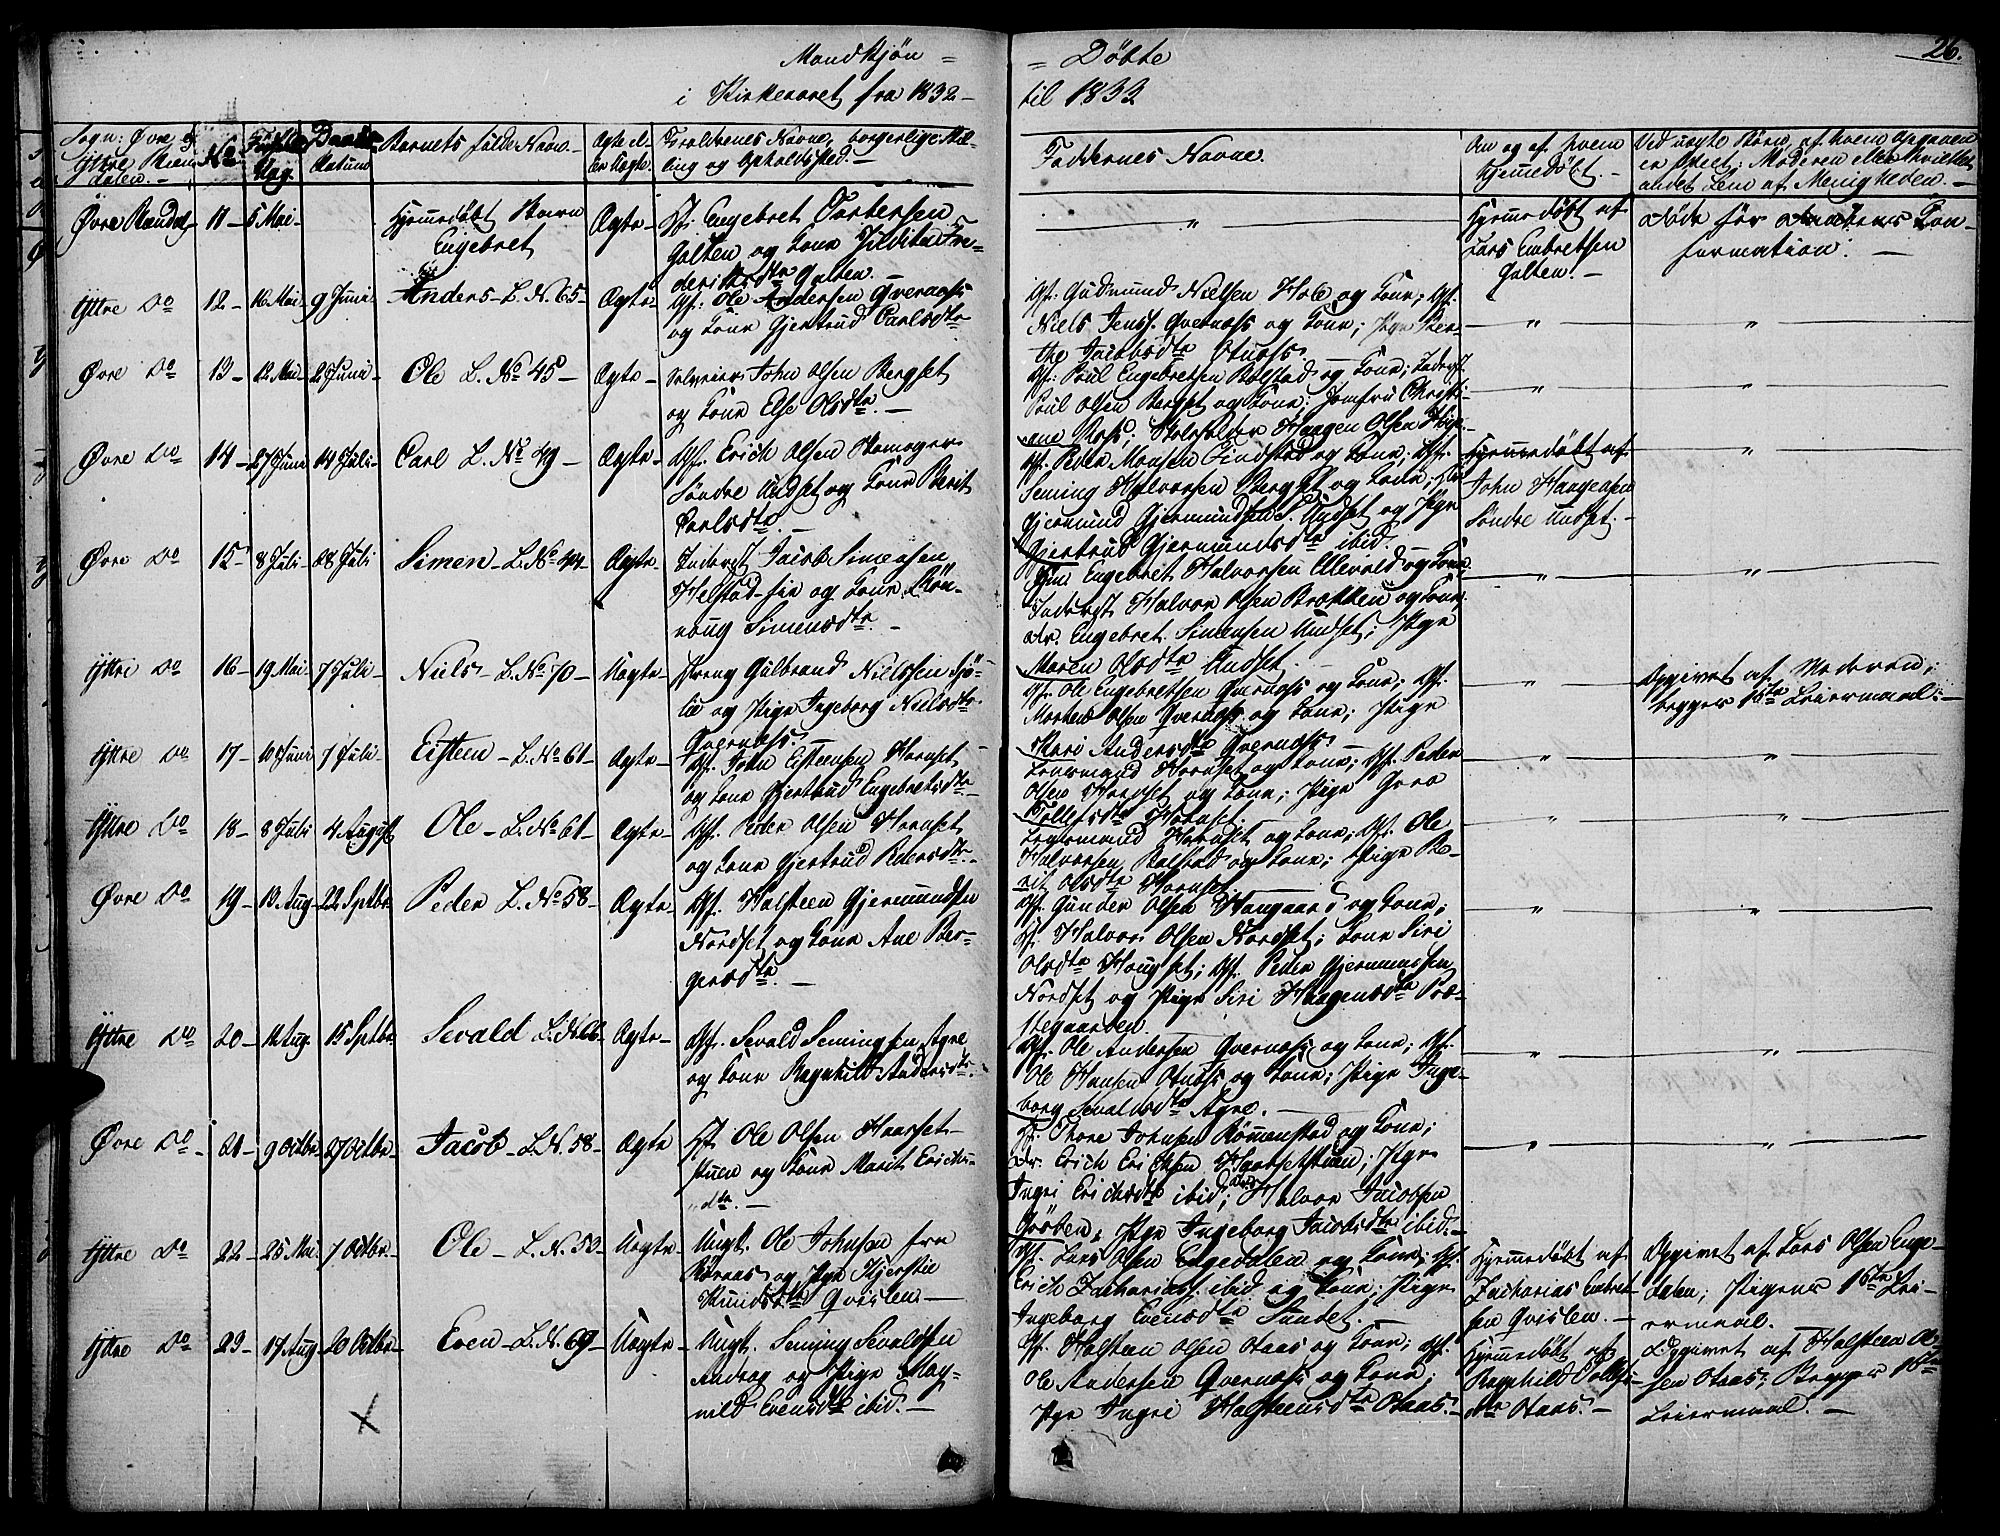 Mandkjøn = = Døbte 26.
i Kirkeaaret fra 1832 — til 1833
Sogn: Øvre og Yttre Rendalen. —
No
Fødsels Dag.
Daabs Datum
Barnets fulde Navn —
Ægte eller Uægte.
Forældrenes Navne, borgerlige Stilling og Opholdssted. —
Faddernes Navne.
Om og af hvem hjemmedøbt. —
Ved uægte Børn, af hvem Opgaven er skeet; Moderen eller hvilket andet Lem af Menigheden. —
Øvre Rendal 11 — 5 Mai —
Hjemmedøbt Barn
Engebret
Ægte —
Engebret Torkersen
Galten og Kone
Galten.
"
Hjemmedøbt af
Lars Embretsen
Galten. —
Døde før Daabens Con-
firmation. —
Yttre Do 12 — 16 Mai — 9 Juni —
Anders — L. No 65 —
Ægte —
Gf. Ole Andersen Qvernæss
og Kone Gjertrud Carlsdtr
Gf. Gudmund Nielsen Hole og Kone; Gf.
Niels Jenss. Qvernæss og Kone; Pige Ber-
the Jacobsdtr Otnæss. —
" "
Øvre Do 13 — 12 Mai — 2 Juni —
Ole L. No 45 —
Ægte —
Selveier John Olsen Bergset
og Kone Else Olsdtr. —
Gf. Poul Engebretsen Bolstad og Kone;
Poul Olsen Bergset og Kone; Jomfru Christi-
ane Ross; Haagen Olsen
" "
Øvre Do 14 — 27 Juni — 14 Juli —
Carl L. No 49 —
Ægte —
Gf. Erich Olsen
Søndre Undset og Kone Berit
Carlsdtr. —
Gf. Peder Monsen Findstad og Kone; Gf.
Seming Halvorsen Bergset og Kone;
Gjermund Gjermundsen S. Undset og Pige
Gjertrud Gjermundsdtr ibid.
Hjemmedøbt af
John Haagensen
Søndre Undset. —
"
Øvre Do 15 — 8 Juli — 28 Juli
Simen — L. No 44 —
Ægte —
Inderst Jacob Simensen
Helstad-sie og Kone Røn-
naug Simensdtr. —
Engebret Halvorsen Ellevold og Kone
Inderst Halvor Olsen Brækken og Kone;
Dr. Engebret Simensen Undset; Pige
Maren Olsdtr Undset. —
" "
Yttre Do 16 — 19 Mai — 7 Juli —
Niels — L. No 70 —
Uægte —
Dreng Gulbrand Nielssen Sjø-
lie og Pige Ingeborg Nielsdtr
Qvernæss. —
Gf. Ole Engebretsen Qvernæss og Kone; Gf.
Morten Olsen Qvernæss og Kone; Pige
Mari Andersdtr Qvernæss —
"
Opgivet af Moderen;
begges 1ste Leiermaal. —
Yttre Do 17 — 10 Juni — 7 Juli —
Eisteen — L. No 61 —
Ægte —
Gf. John Eisteensen Hornset
og Kone Gjertrud Engebretsdtr —
Hornset og Kone; Gf. Peder
Olsen Hornset og Kone; Pige Gura
Tollefsdtr Hornset.
" "
Yttre Do 18 — 8 Juli 4 August
Ole — L. No 61 —
Ægte —
Gf. Peder Olsen Hornset
og Kone Gjertrud Pedersdtr —
Hornset og Kone; Gf. Ole
Halvorsen Bolstad og Kone; Pige Be-
rit Olsdtr Hornset.
" "
Øvre Do 19 — 13 Aug — 22 Septbr
Peder L. No 58 —
Ægte —
Gf. Halsteen Gjermundsen
Nordset og Kone Ane Ber-
gersdtr. —
Gf. Gunder Olsen Haugaard og Kone;
Halvor Olsen Nordset; Kone Siri
Olsdtr Haugset; Gf. Peder Gjermundsen
Nordset og Pige Siri Haagensdtr Præ-
stegaarden
" "
Yttre Do 20 — 14 Aug. 15 Septbr
Sevald L. No 66 —
Ægte —
Gf. Sevald Semingsen Agre
og Kone Ragnhild Andersdtr.
Gf. Ole Andersen Qvernæss og Kone; Gf.
Ole Hansen Otnæss og Kone; Pige Inge-
borg Sevaldsdtr Agre. —
" "
Øvre Do — 21 — 9 Octbr — 27 Octbr —
Jacob — L. N. 58 —
Ægte
Ole Olsen Haarset
stuen og Kone Marit Erichs-
dtr. —
Thore Johnsen Rømmenstad og Kone;
Dr. Erich Erichsen Haarsetstuen; Pige
Ingri Erichsdtr ibid; Halvor Jacobsen
Grøben, Pige Ingeborg Jacobsdtr ibid. —
" "
Yttre Do 22 — 25 Mai — 7 Octbr —
Ole — L. N. 53 —
Uægte —
Ungk. Ole Johnsen fra
Røraas og Pige Kjerstie
Knudsdtr Qvislen —
Gf. Lars Olsen Engedalen og Kone; Gf.
Erich Zachariass. ibid og Kone; Pige
Ingeborg Evensdtr Sandet. —
Hjemmedøbt af
Zacharias Embret-
sen Qvislen. —
Opgivet af Lars Olsen Enge-
dalen; Pigens 1ste Lei-
ermaal.
Yttre Do 23 — 17 Aug — 20 Octbr —
Even — L. N. 69 —
Uægte —
Ungk. Seming Sevaldsen
Andraa og Pige Mag-
nild Evensdtr ibid. —
Gf. Halsteen Olsen Haas og Kone; Gf.
Ole Andersen Qvernæss og Kone;
Pige Ingri Halsteensdtr Haas. —
Hjemmedøbt af
Ragnhild Tollefs-
dtr Haas. —
Opgivet af Halsteen Ol-
sen Haas; Begges 1ste
Leiermaal. —
X